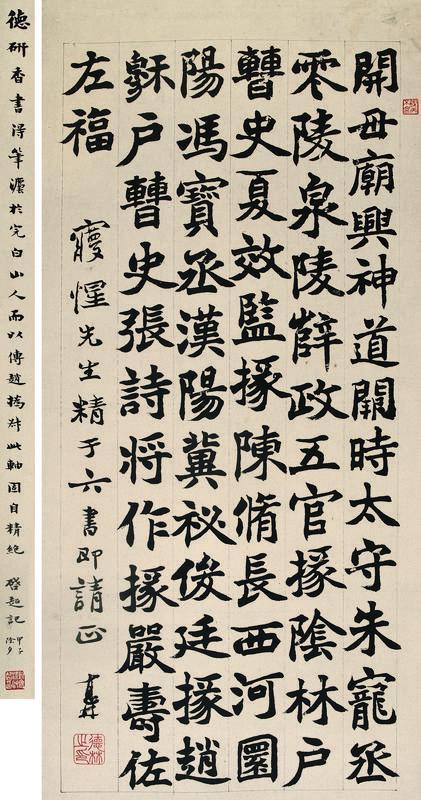 開母廟興神道闕時太守朱寵丞
零陵泉陵薛政五官掾陰林戶
曹史夏效監掾陳脩長西河圜
陽馮寶丞漢陽冀祕俊廷掾趙
穌戶曹史張詩將作掾嚴壽佐
左福
惺先生精于六書即請正
德林之印
德研香書得筆灋於完白山人而以傳趙撝叔此軸固自精絕 啓超記 甲子除夕